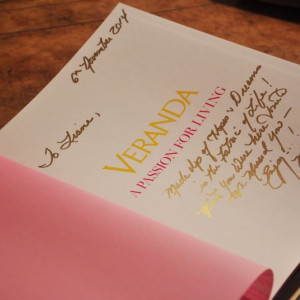 6th November 2014
To Liane,
VERANDA
A PASSION FOR LIVING
Made Up of Hopes & Dreams
is the Fabric of Life!
Wish You Were Here